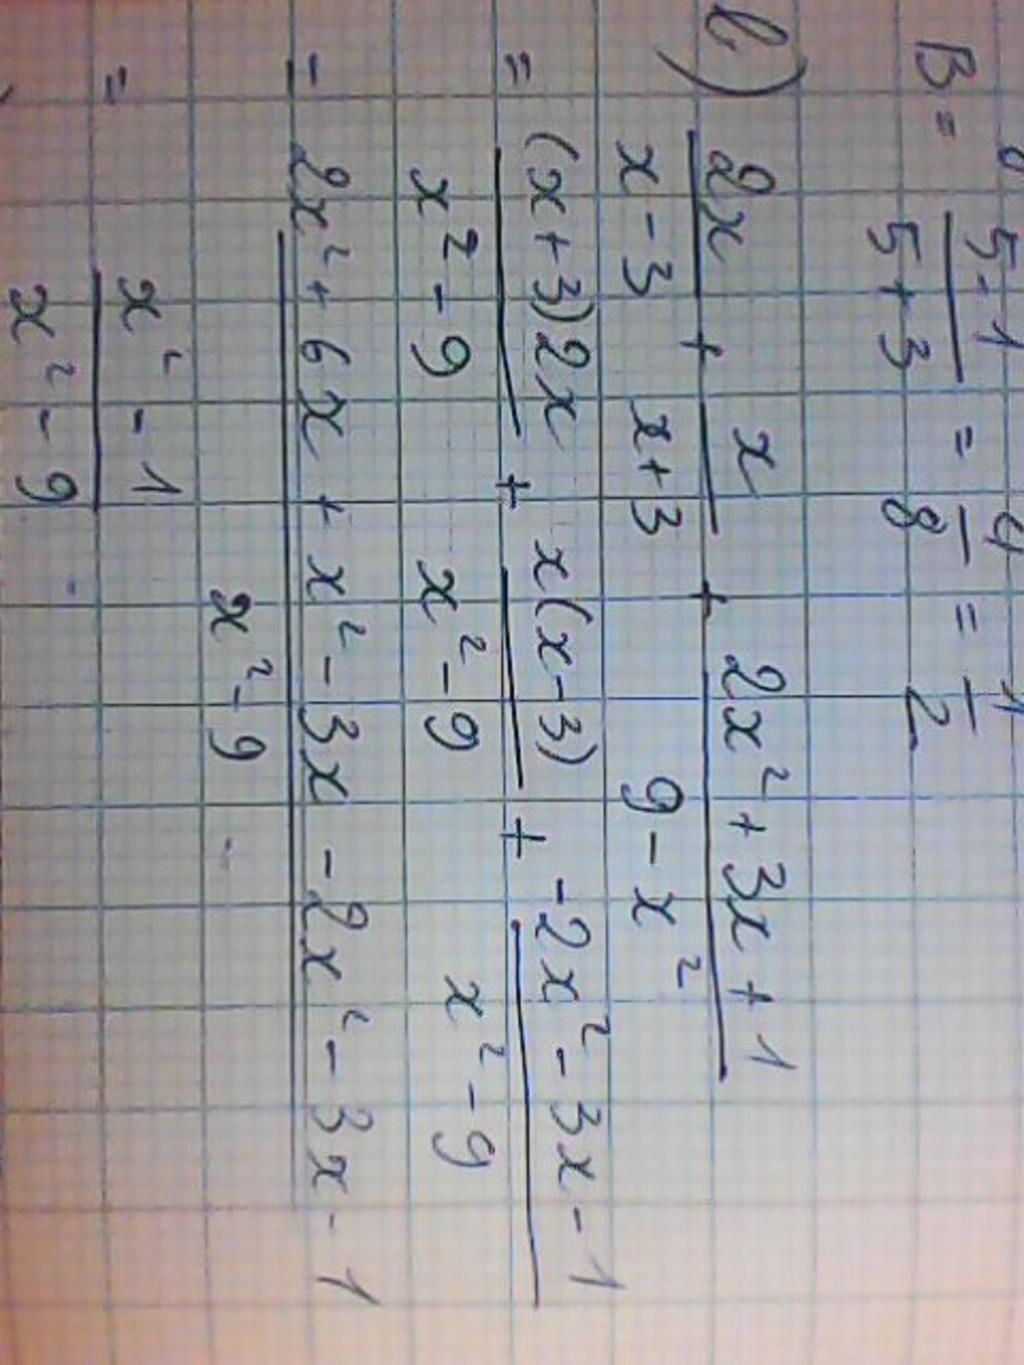 B = (5-1)/(5+3) = 4/8 = 1/2
b) 2x/(x-3) + x/(x+3) + (2x²+3x+1)/(9-x²)
= (x+3)2x/(x²-9) + x(x-3)/(x²-9) + (-2x²-3x-1)/(x²-9)
= (2x²+6x+x²-3x-2x²-3x-1)/(x²-9)
= (x²-1)/(x²-9)